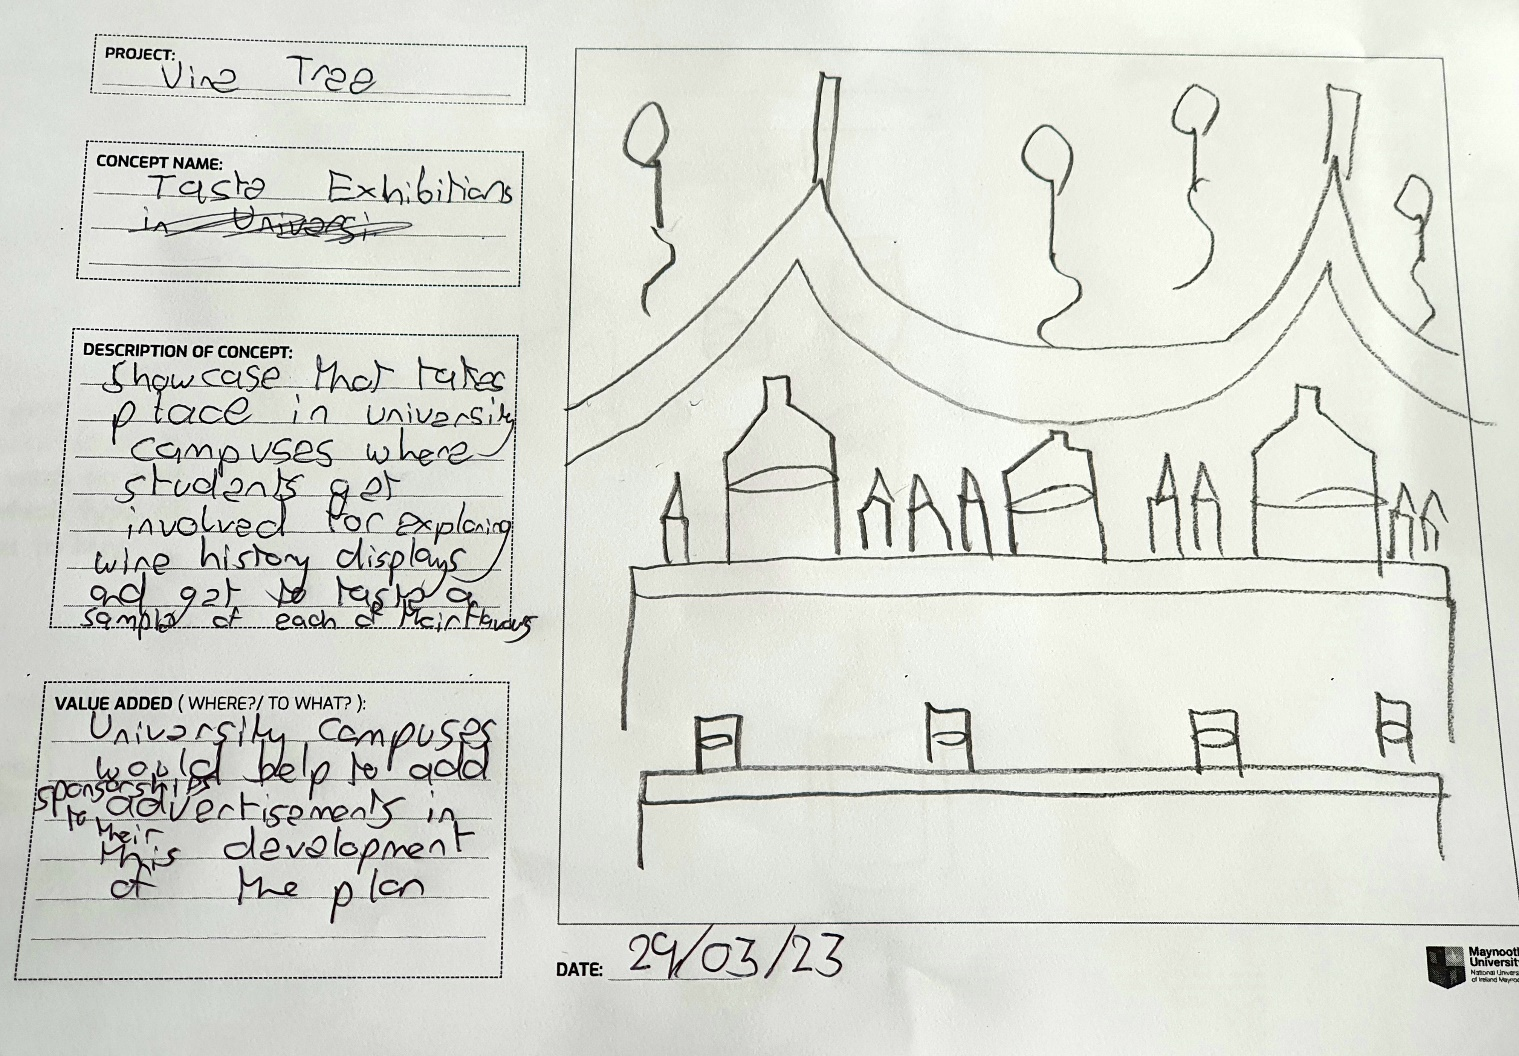 PROJECT:
Vine Tree
CONCEPT NAME:
Taste Exhibitions
in Universi
DESCRIPTION OF CONCEPT:
Showcase that takes
place in university
campuses where
students get
involved for exploring
wine history displays
and get to taste a
sample of each of their flavours
VALUE ADDED ( WHERE?/ TO WHAT? ):
University campuses
would help to add
sponsorships
to advertisements in
their
this development
of the plan
DATE: 29/03/23
Maynooth
University
National Univers
of Ireland Maynoo